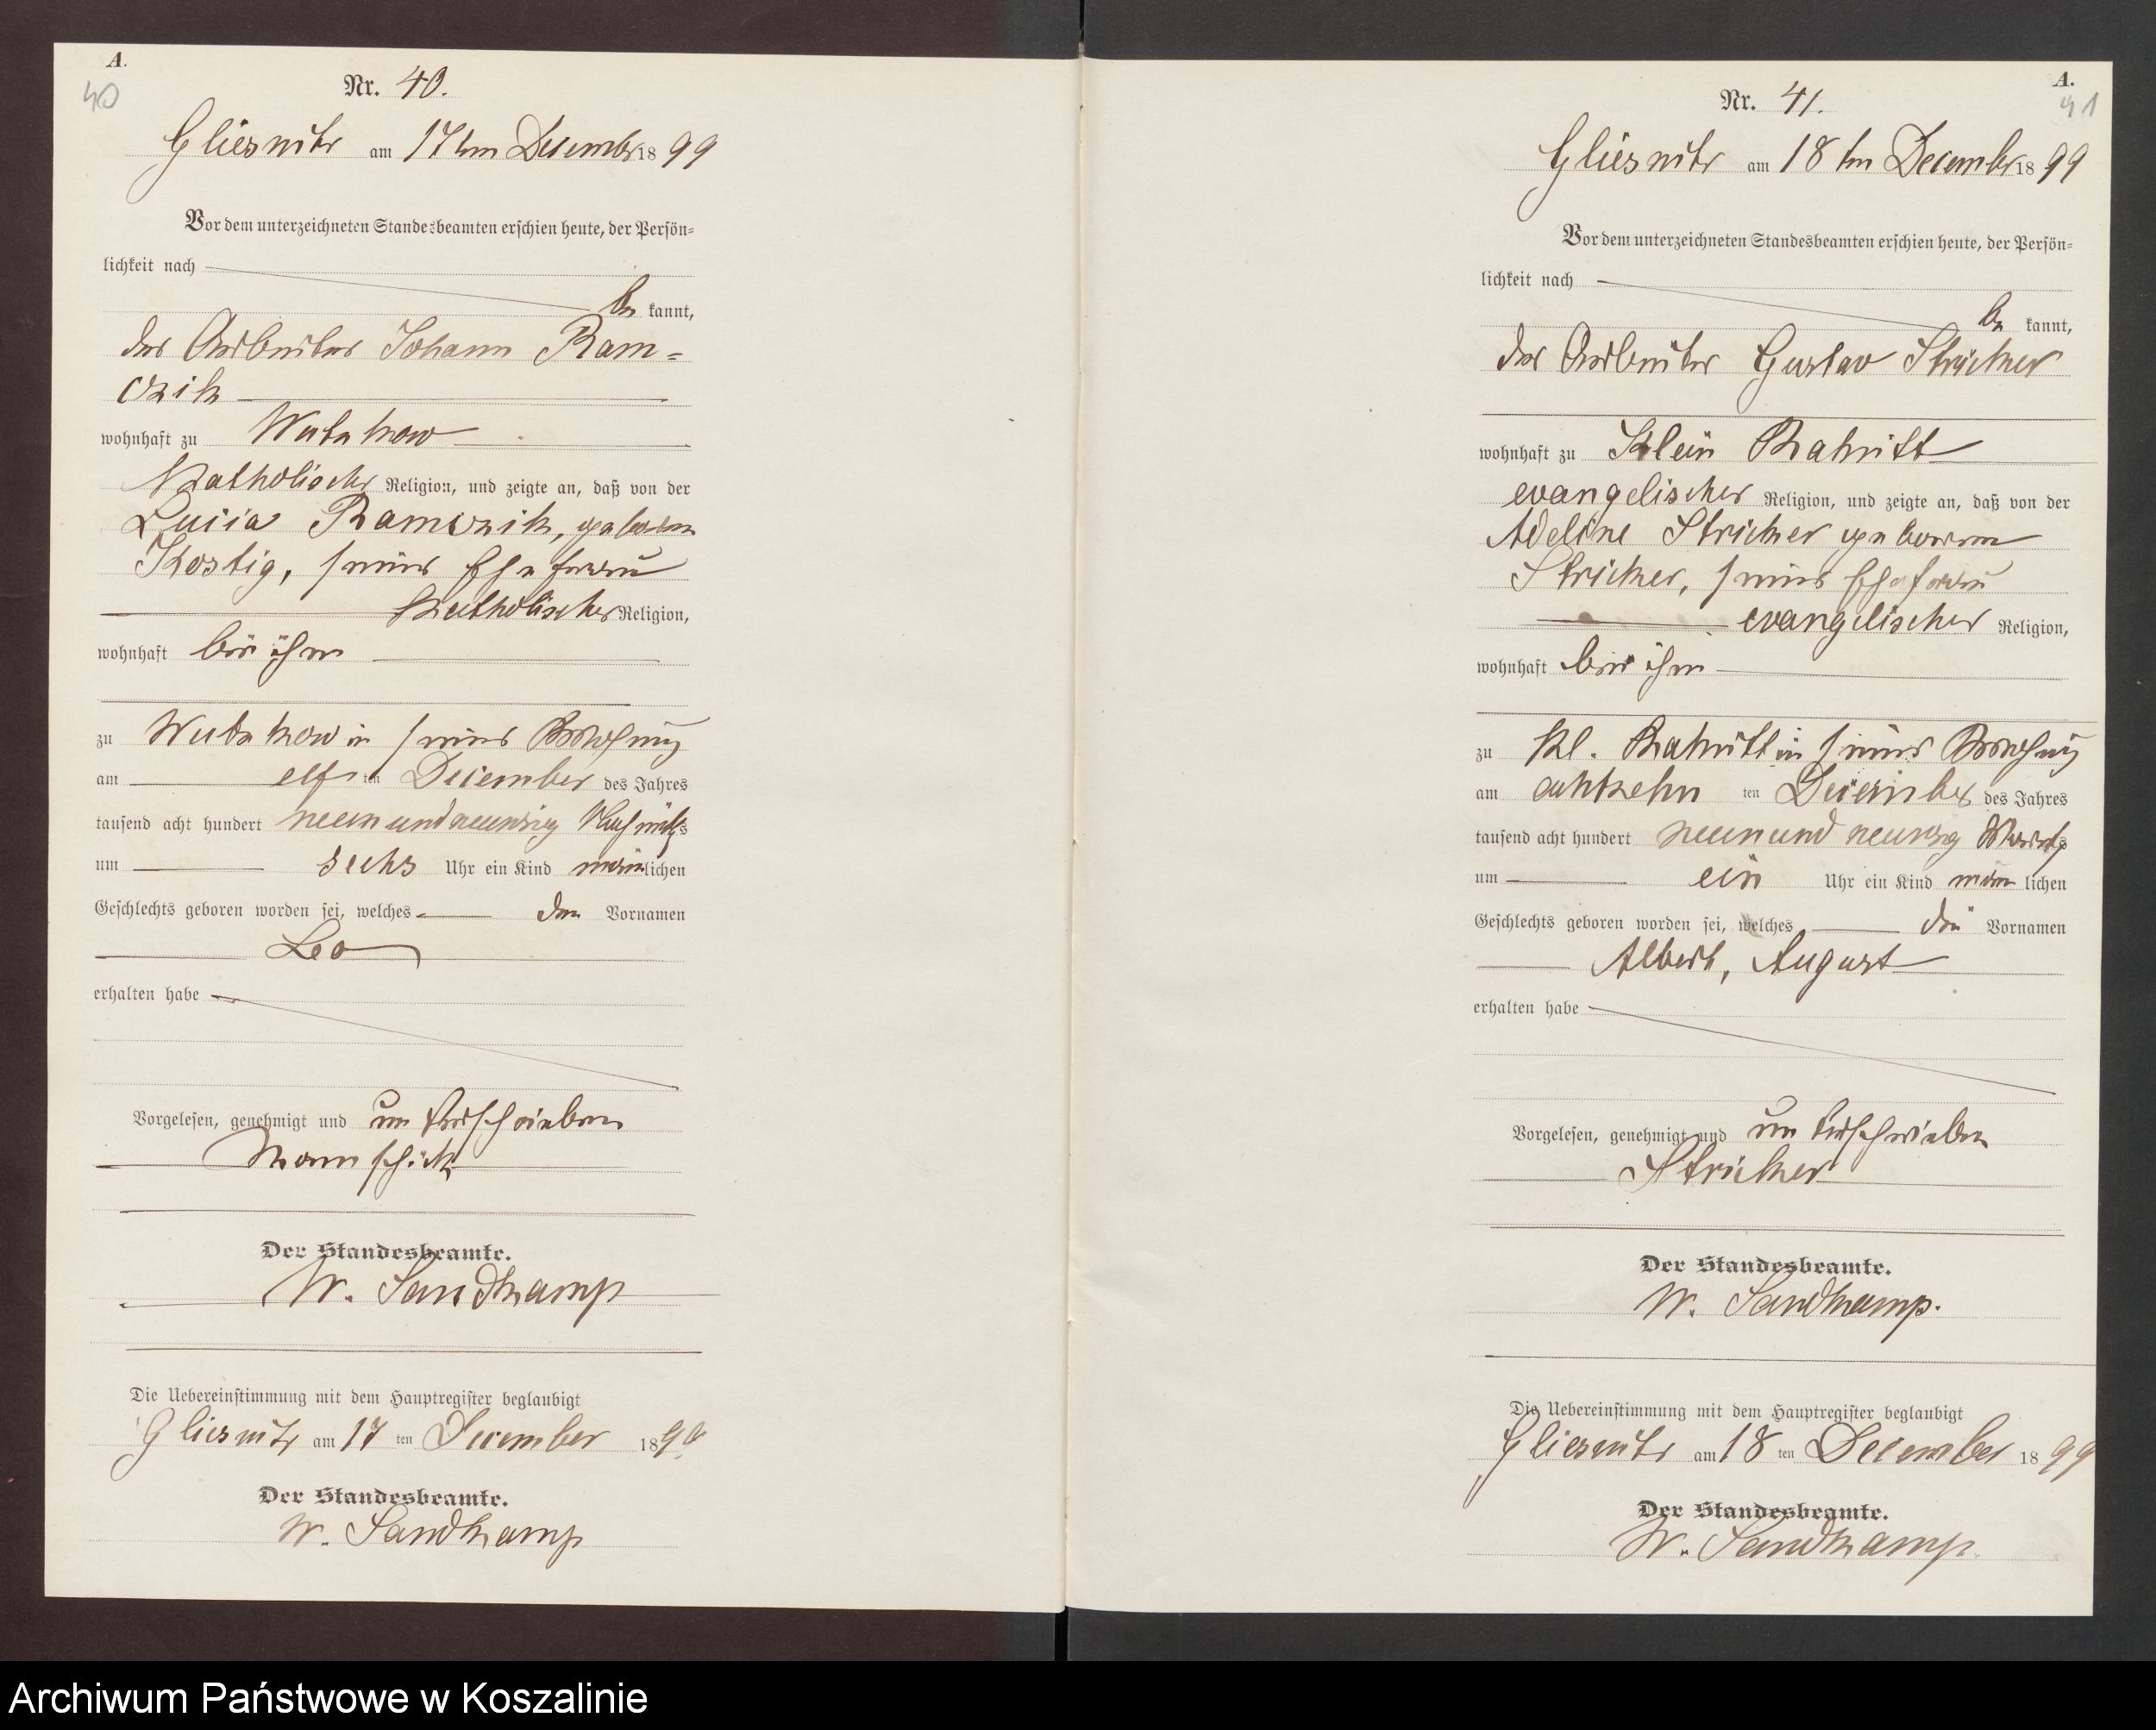 A.
40
Nr. 40.
Gliesnitz am 17ten December 1899
Vor dem unterzeichneten Standesbeamten erschien heute, der Persön=
lichkeit nach
be kannt,
der Arbeiter Johann Ram=
czik
wohnhaft zu
Katholischer Religion, und zeigte an, daß von der
Lucia Ramczik, geboren
Kostig, seiner Ehefrau
Katholischer Religion,
wohnhaft bei ihm
zu in seiner Wohnung
am elf ten December des Jahres
tausend acht hundert neunundneunzig Nachmittags
um sechs Uhr ein Kind männlichen
Geschlechts geboren worden sei, welches den Vornamen
Leo
erhalten habe
Vorgelesen, genehmigt und unterschrieben
Der Standesbeamte.
W. Sandkamp
Die Uebereinstimmung mit dem Hauptregister beglaubigt
Gliesnitz am 17 ten December 1899
Der Standesbeamte.
W. Sandkamp
A.
41
Nr. 41.
Gliesnitz am 18ten December 1899
Vor dem unterzeichneten Standesbeamten erschien heute, der Persön=
lichkeit nach
be kannt,
der Arbeiter Gustav Stricker
wohnhaft zu Klein Rakitt
evangelischer Religion, und zeigte an, daß von der
Adeline Stricker geborenen
Stricker, seiner Ehefrau
evangelischer Religion,
wohnhaft bei ihm
zu Kl. Rakitt in seiner Wohnung
am achtzehn ten December des Jahres
tausend acht hundert neunundneunzig
um ein Uhr ein Kind männ lichen
Geschlechts geboren worden sei, welches die Vornamen
Albert, August
erhalten habe
Vorgelesen, genehmigt und unterschrieben
Stricker
Der Standesbeamte.
W. Sandkamp.
Die Uebereinstimmung mit dem Hauptregister beglaubigt
Gliesnitz am 18 ten December 1899
Der Standesbeamte.
W. Sandkamp.
Archiwum Państwowe w Koszalinie